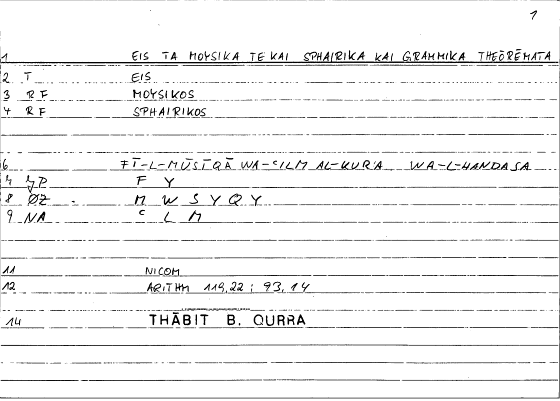 1
1 EIS TA MOYSIKA TE KAI SPHAIRIKA KAI GRAMMIKA THEŌRĒMATA
2 T EIS
3 RF MOYSIKOS
4 RF SPHAIRIKOS
6 FĪ-L-MŪSĪQĀ WA-ʿILM AL-KURA WA-L-HANDASA
F Y
8 ØZ M W S Y Q Y
9 NA ʿ L M
11 NICOM
12 ARITHM 119,22 ; 93,14
14 THĀBIT B. QURRA